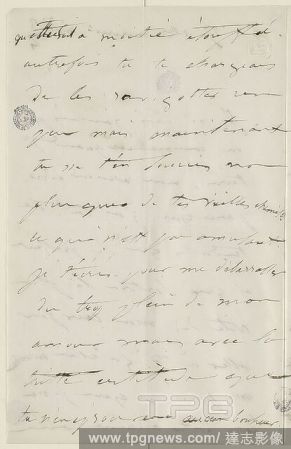 à moitié étouffé.
autrefois tu te chargeais
de les
que mais maintenant
tu ne t'en soucies non
plus que de tes vieilles chemises
ce qui n'est pas amusant
je t'écris pour me débarrasser
du trop plein de mon
amour mais avec la
triste certitude que
tu n'en aucun bonheur
TPG
www.tpgnews.com / 達志影像